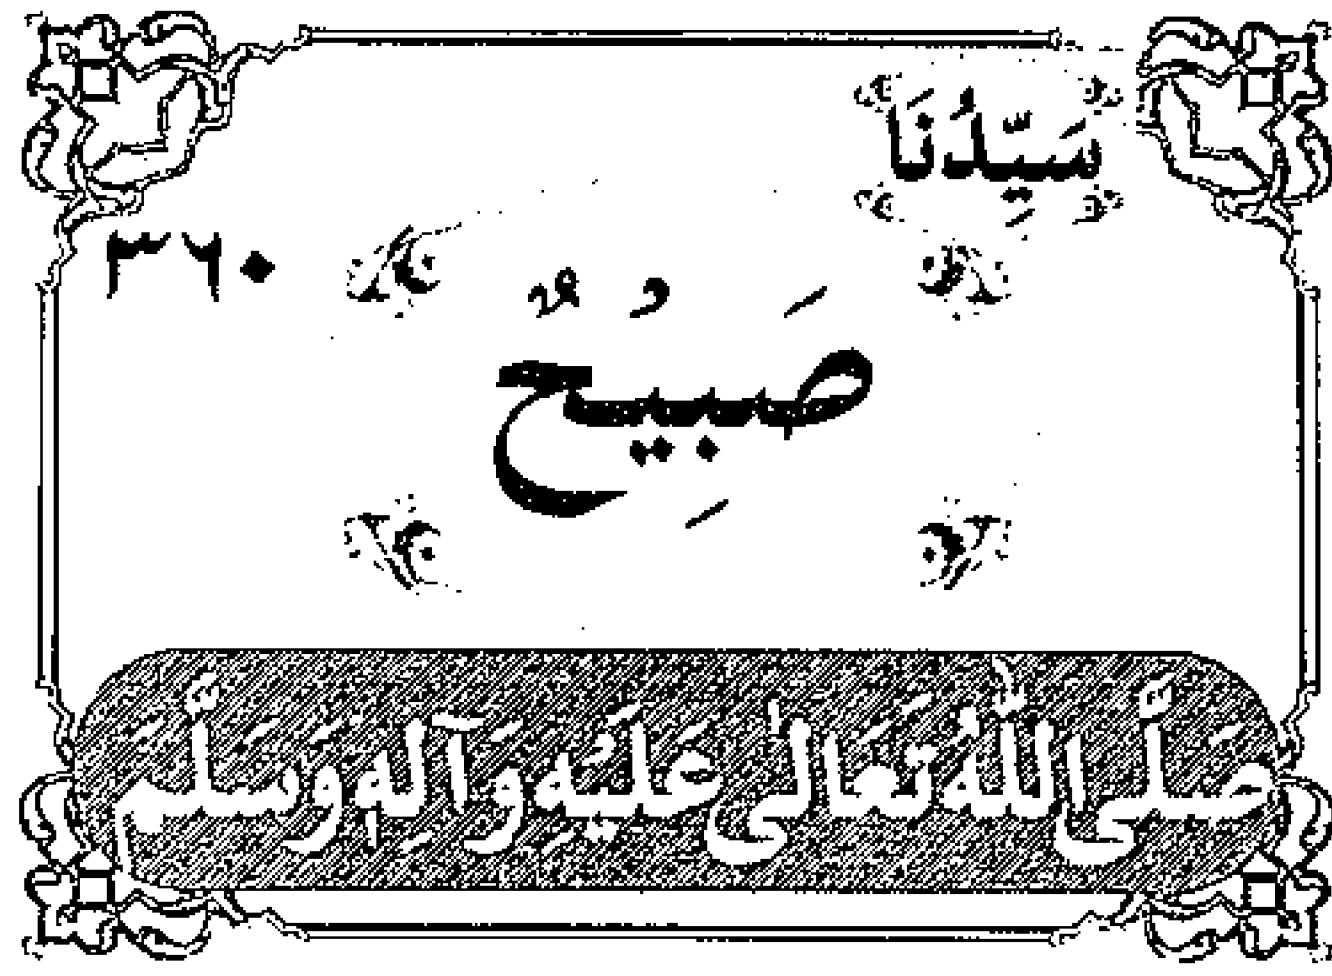 سَيِّدُنَا
٣٦٠
صَبِيحٌ
صَلَّى اللّٰهُ تَعَالٰى عَلَيْهِ وَآلِهٖ وَسَلَّم